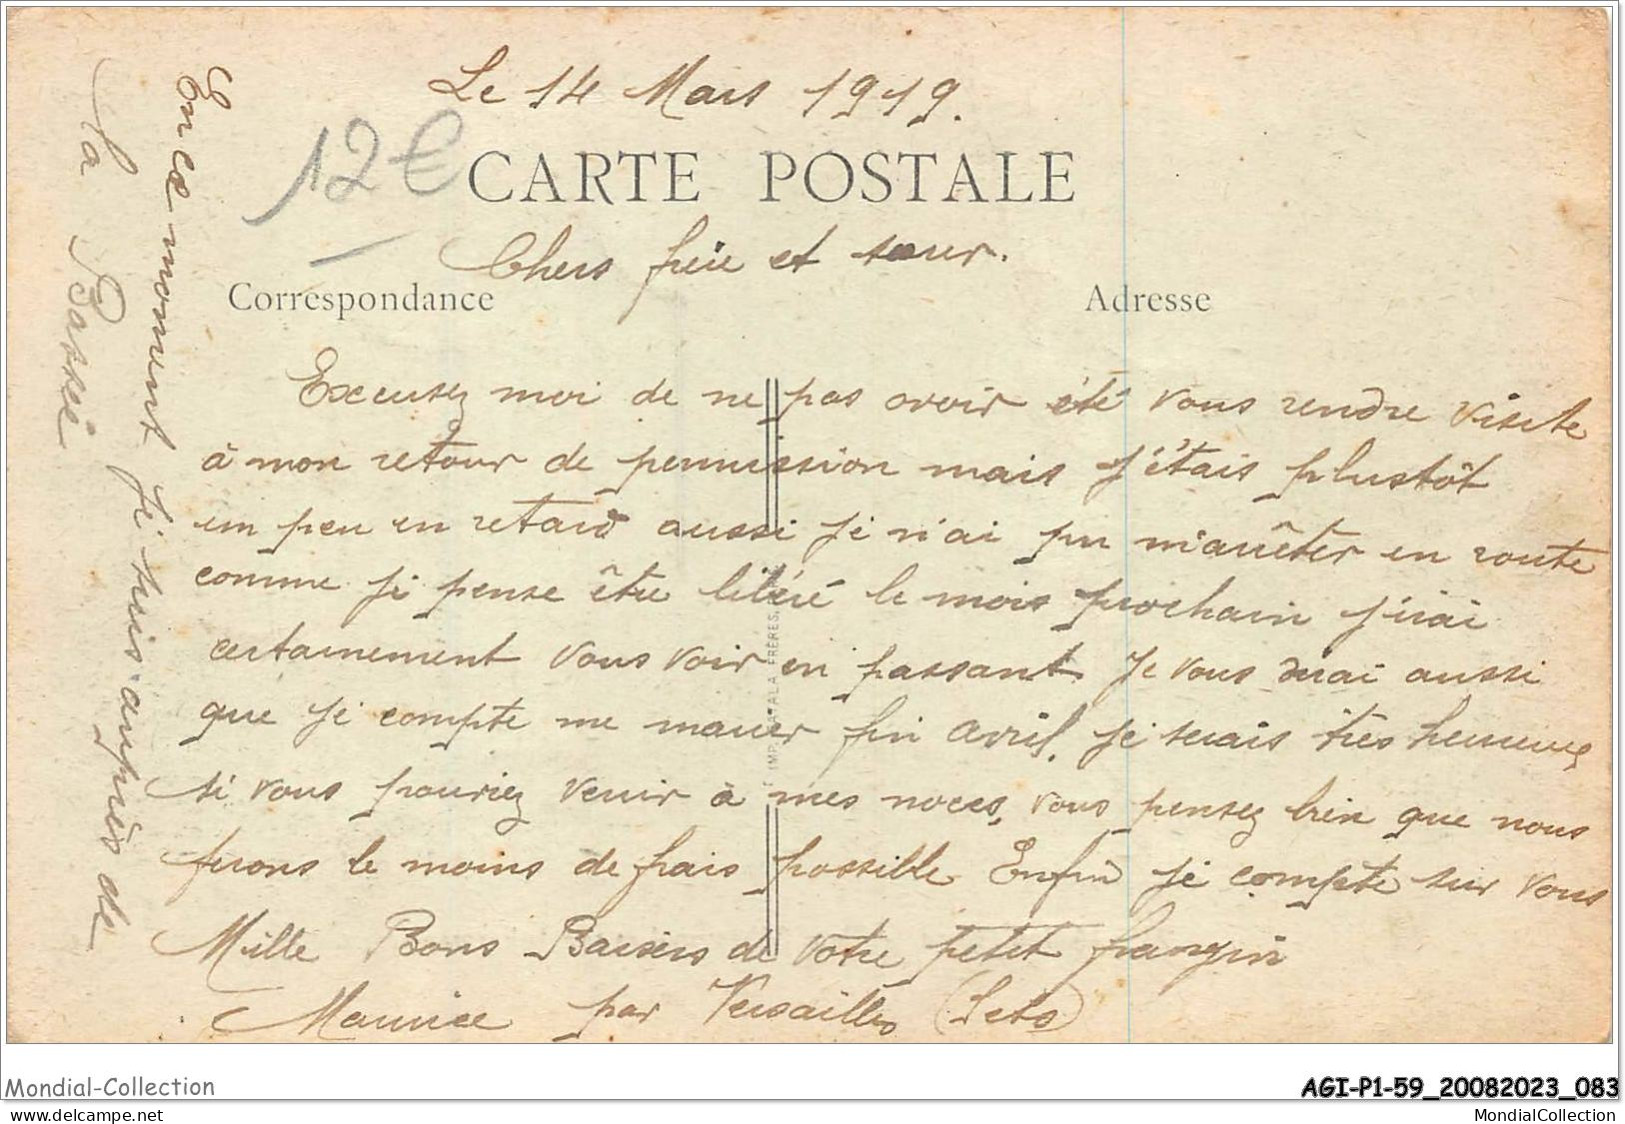 Le 14 Mars 1919.
12€
CARTE POSTALE
Chers frère et sœur.
Correspondance
Adresse
Excusez moi de ne pas avoir été vous rendre visite
à mon retour de permission mais j'étais plustôt
un peu en retard aussi je n'ai pu m'arrêter en route
comme je pense être libéré le mois prochain j'irai
certainement vous voir en passant. Je vous dirai aussi
que je compte me marier fin avril. je serais très heureux
si vous pouriez venir à mes noces, vous pensez bien que nous
ferons le moins de frais possible. Enfin je compte sur vous
Mille Bons Baisers de votre petit frangin
Maurice par Versailles
En ce moment je suis auprès de
la Bassée
IMP. CATALA FRÈRES
Mondial-Collection
AGI-P1-59_20082023_083
MondialCollection.net
MondialCollection